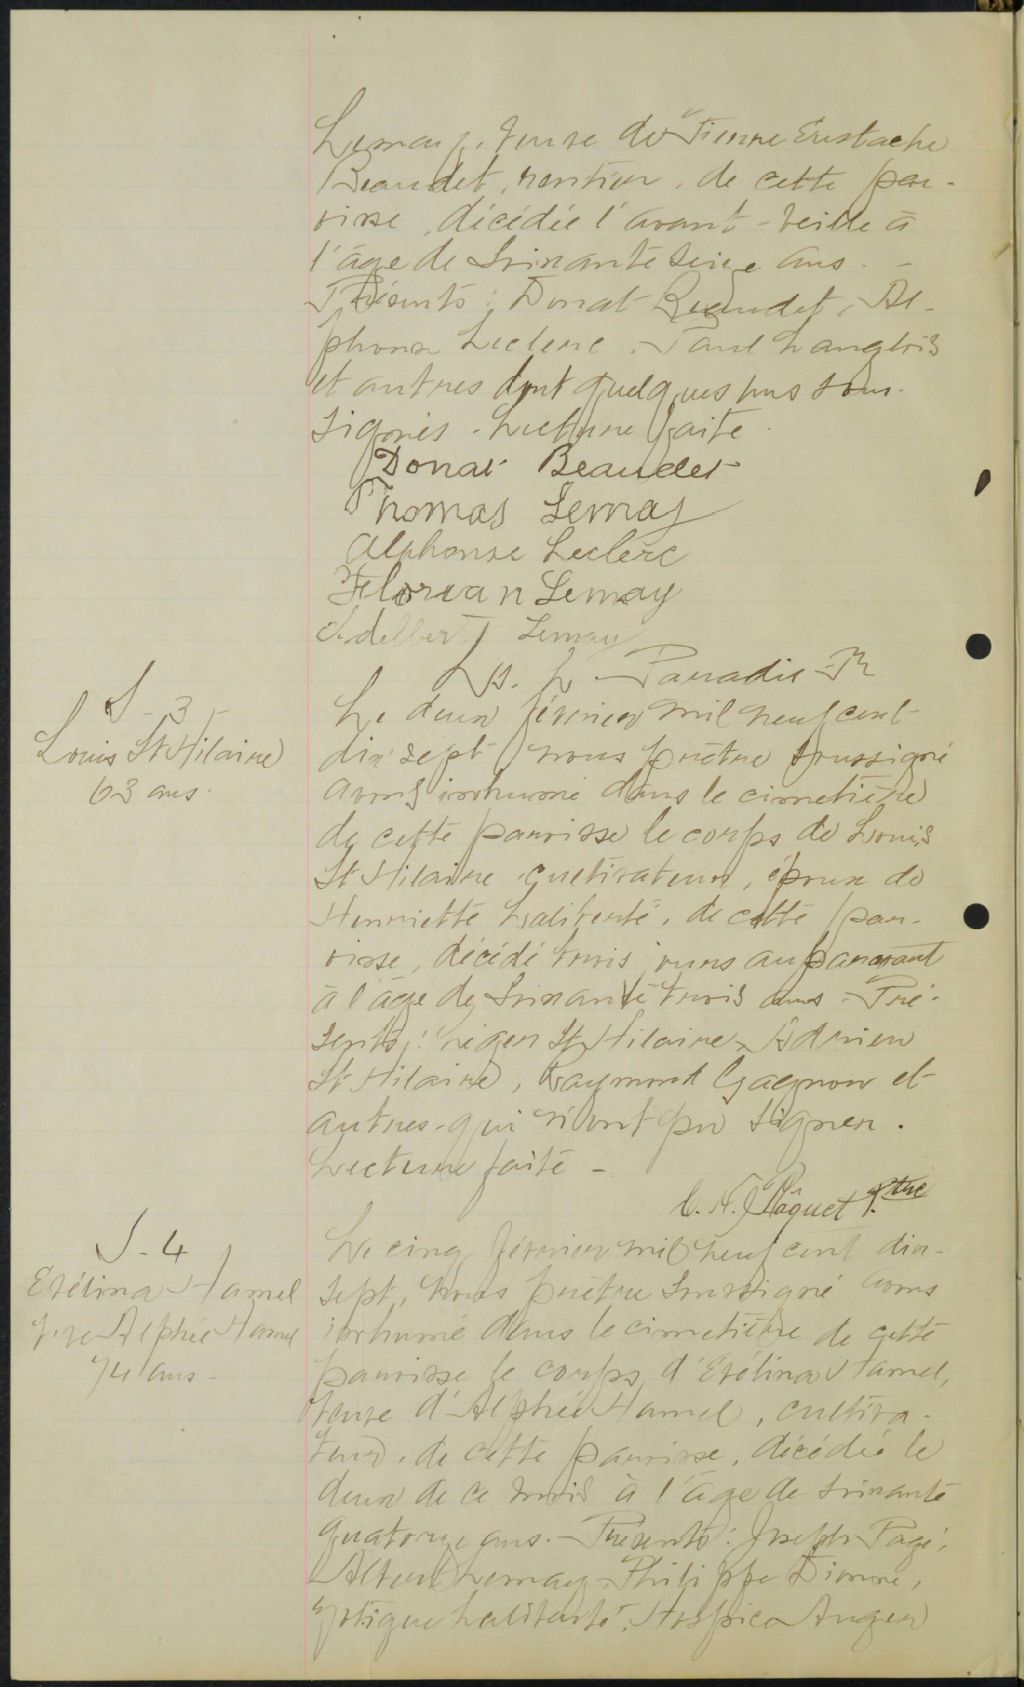 Lemay, veuve de Pierre Eustache
Beaudet, rentier, de cette pa-
roisse, décédée l'avant-veille à
l'âge de soixante seize ans. -
Présents: Donat Beaudet, Al-
phonse Leclerc, Paul Langlois
et autres dont quelques uns sous-
signés. Lecture faite.
Donat Beaudet
Thomas Lemay
Alphonse Leclerc
Florean Lemay
Adelbert Lemay
L. Paradis
S-3-
Louis St Hilaire
63 ans.
Le deux février mil neuf cent-
dix sept nous prêtre soussigné
avons inhumé dans le cimetière
de cette paroisse le corps de Louis
St Hilaire cultivateur, époux de
Henriette Laliberté, de cette pa-
roisse, décédé trois jours auparavant
à l'âge de soixante trois ans. Pré-
sents: St Hilaire, Adrien
St Hilaire, Raymond Gagnon et
autres qui n'ont pu signer.
Lecture faite -
C. A. Pâquet Ptre
S-4
Evélina Hamel
Vve Alphée Hamel
74 ans -
Le cinq février mil neuf cent dix-
sept, nous prêtre soussigné avons
inhumé dans le cimetière de cette
paroisse le corps d'Evélina Hamel,
veuve d'Alphée Hamel, cultiva-
teur, de cette paroisse, décédée le
deux de ce mois à l'âge de soixante
quatorze ans. - Présents: Joseph Pagé,
Lemay, Philippe Dionne,
Laliberté, Hospice Auger